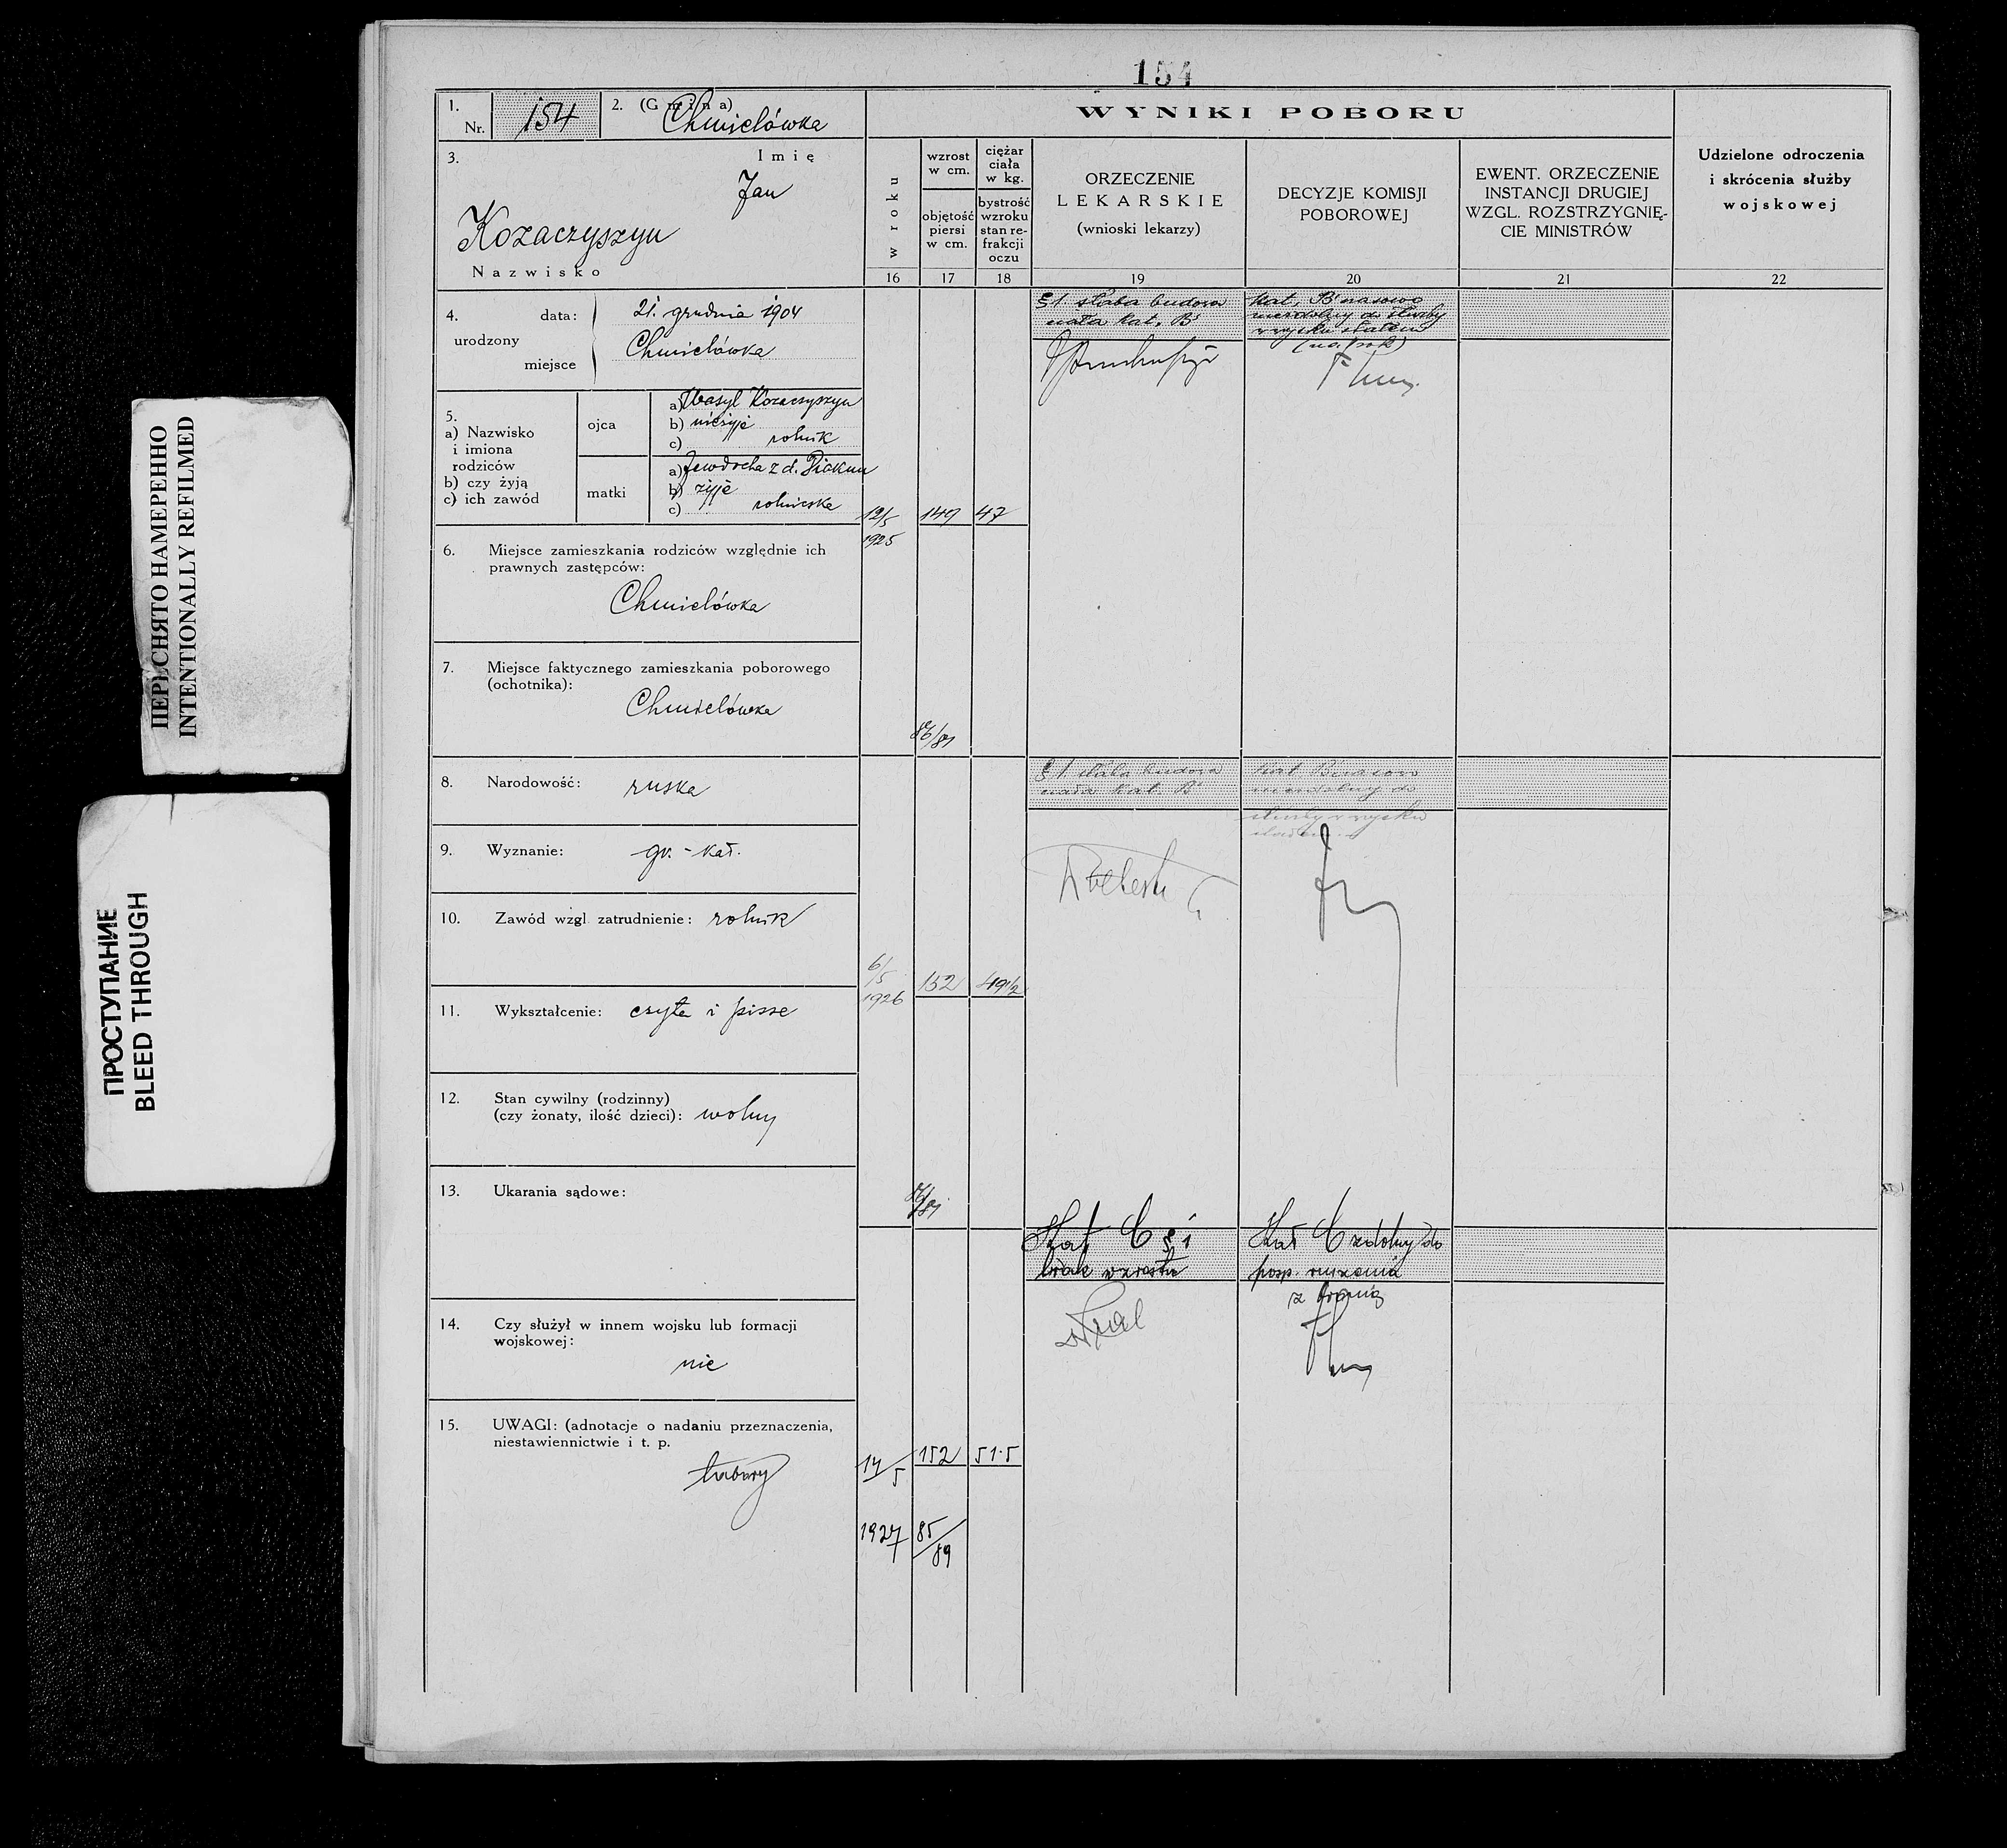 154
1.
Nr. 154
2. (Gmina)
Chmielówka
3. Imię
Jan
Kozaczyszyn
Nazwisko
WYNIKI POBORU
w roku
wzrost w cm.
objętość piersi w cm.
ciężar ciała w kg.
bystrość wzroku stan re-frakcji oczu
ORZECZENIE
LEKARSKIE
(wnioski lekarzy)
DECYZJE KOMISJI
POBOROWEJ
EWENT. ORZECZENIE
INSTANCJI DRUGIEJ
WZGL. ROZSTRZYGNIĘ-
CIE MINISTRÓW
Udzielone odroczenia
i skrócenia służby
wojskowej
16 17 18 19 20 21 22
4. urodzony
data: 21. grudnia 1904
miejsce Chmielówka
5.
a) Nazwisko
i imiona
rodziców
b) czy żyją
c) ich zawód
ojca
a) Wasyl Kozaczyszyn
b) nieżyje
c) rolnik
matki
a) Jewdocha z d. Pickun
b) żyje
c) rolniczka
6. Miejsce zamieszkania rodziców względnie ich
prawnych zastępców:
Chmielówka
7. Miejsce faktycznego zamieszkania poborowego
(ochotnika):
Chmielówka
8. Narodowość: ruska
9. Wyznanie: gr. - kat.
10. Zawód wzgl. zatrudnienie: rolnik
11. Wykształcenie: czyta i pisze
12. Stan cywilny (rodzinny)
(czy żonaty, ilość dzieci): wolny
13. Ukarania sądowe:
14. Czy służył w innem wojsku lub formacji
wojskowej:
nie
15. UWAGI: (adnotacje o nadaniu przeznaczenia,
niestawiennictwie i t. p.
tabory
12/5 149 47
1925
§ 1. słaba budowa
kat. B
kat. B
niezdolny do służby
w wojsku stałem
6/5 152 49 1/2
1926
§ 1. słaba budowa
kat. B
kat B
niezdolny do
służby w wojsku
stałem
14/5 152 51·5
1927 85/89
Kat C § 1
brak wzrostu
Kat C zdolny do
posp. ruszenia
z bronią
ПЕРЕСНЯТО НАМЕРЕННО
INTENTIONALLY REFILMED
ПРОСТУПАНИЕ
BLEED THROUGH